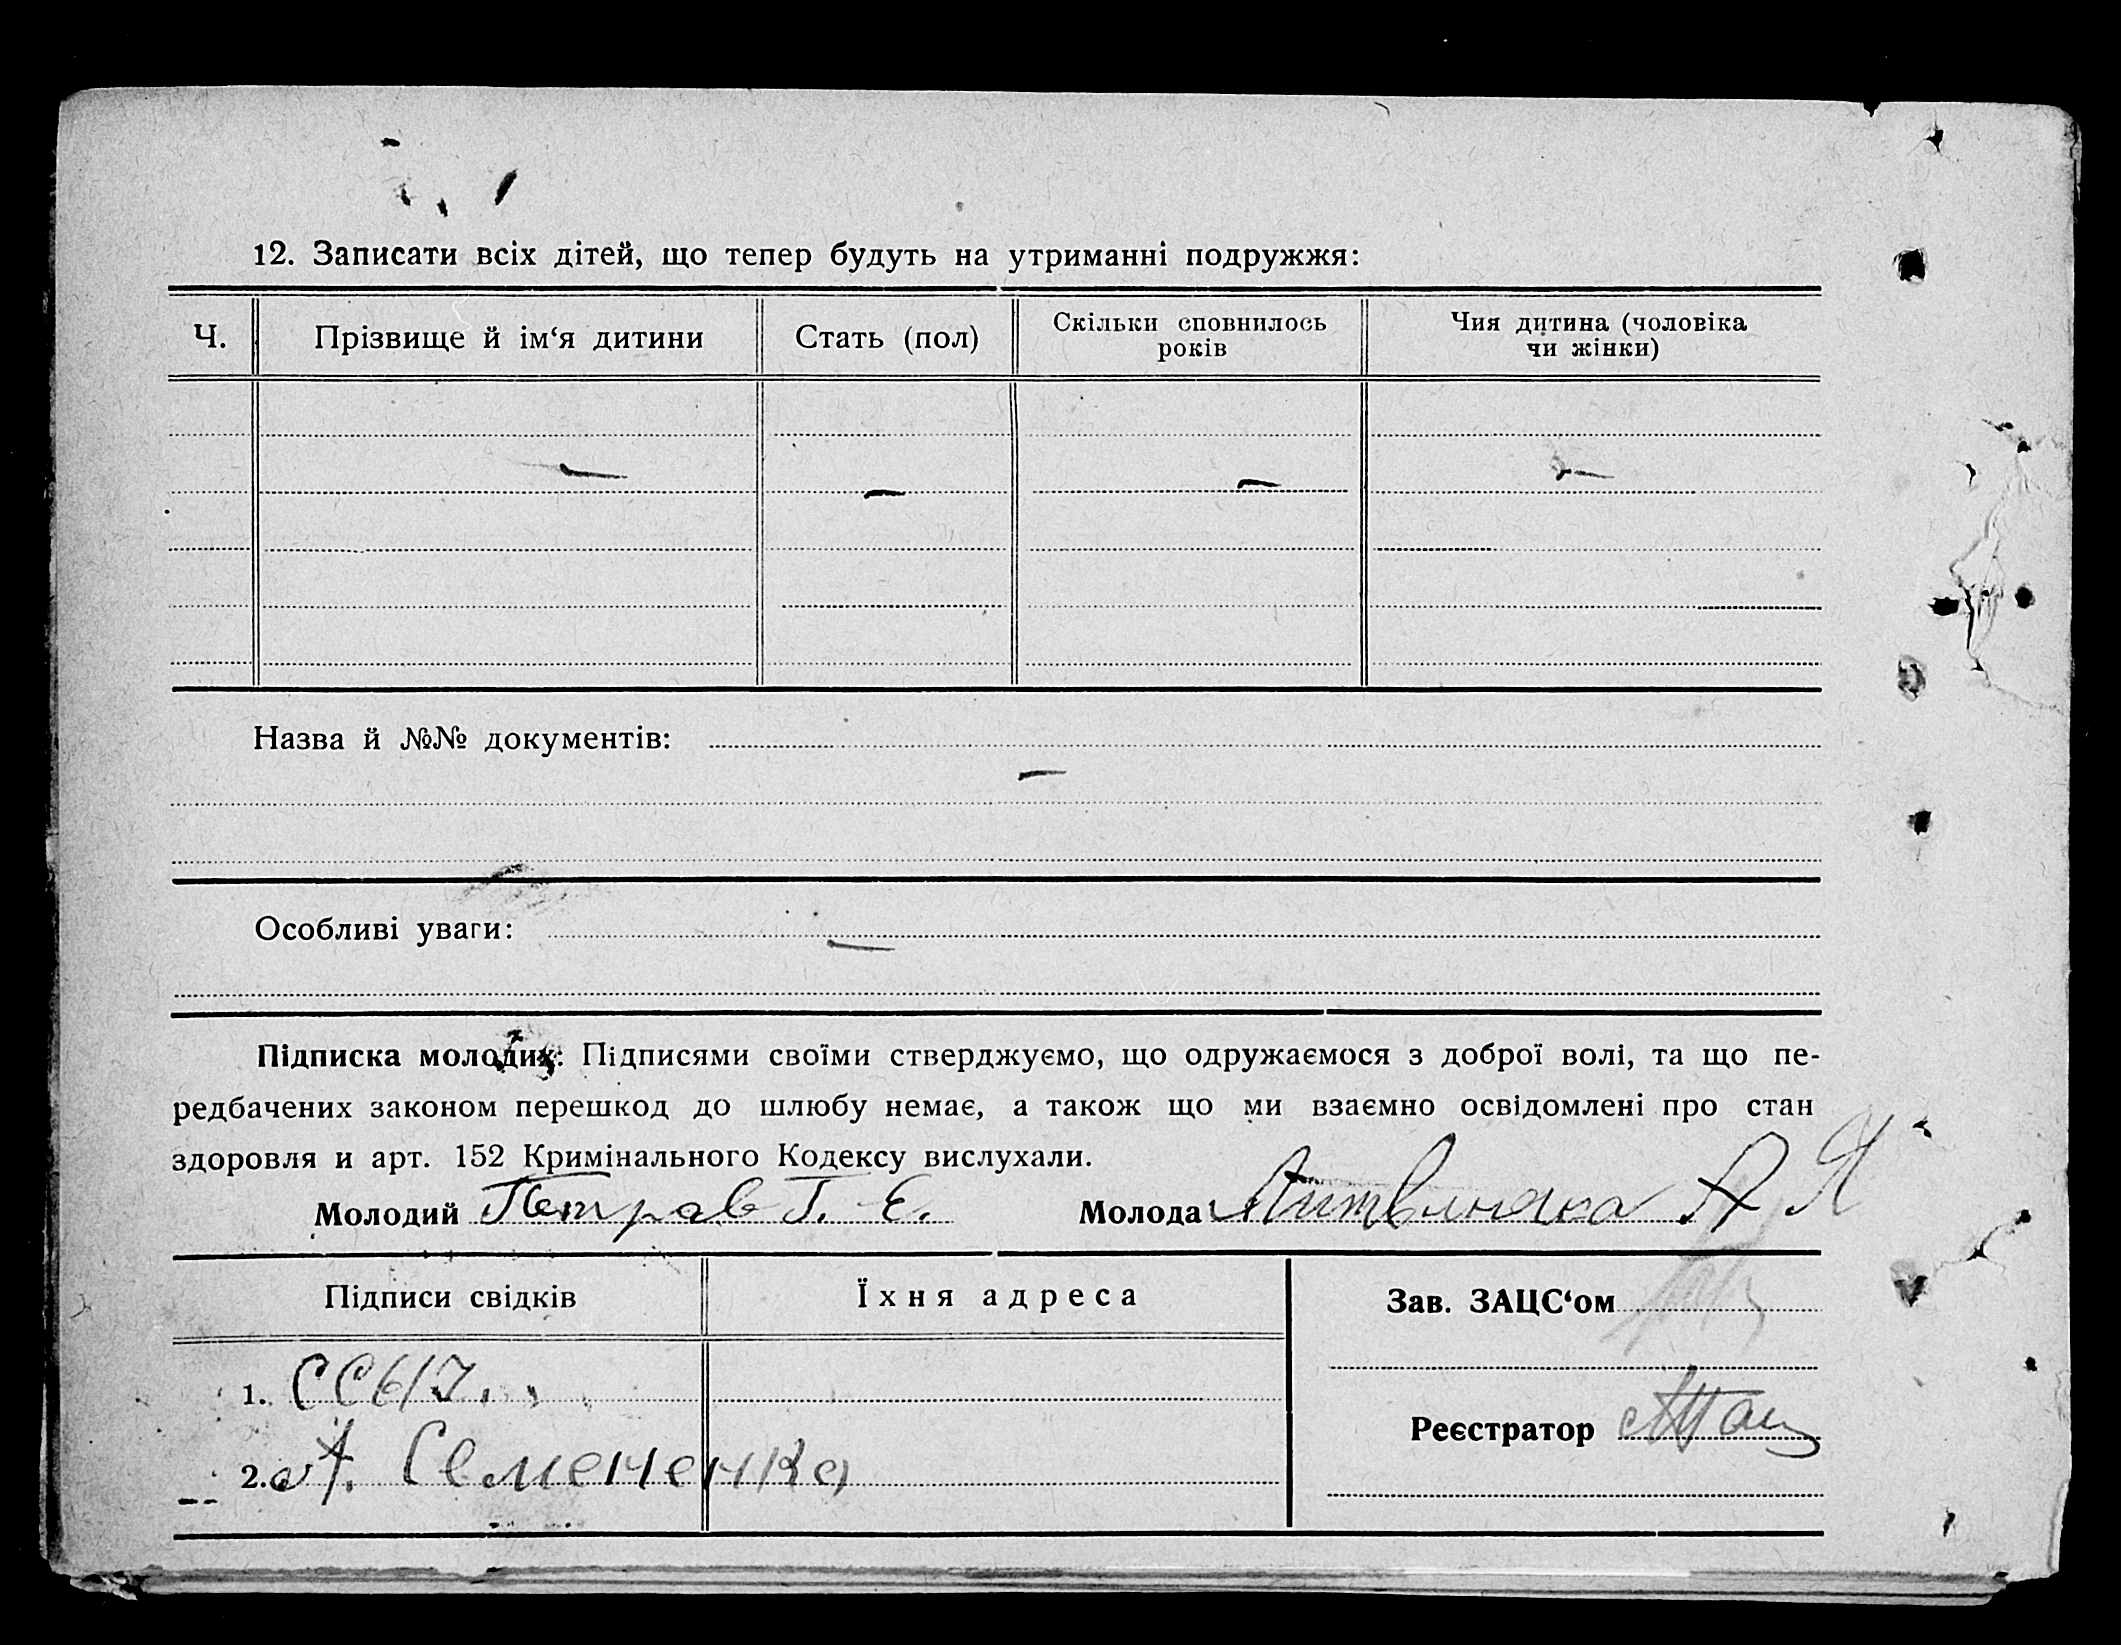 12. Записати всіх дітей, що тепер будуть на утриманні подружжя:
Ч. Прізвище й ім‘я дитини Стать (пол) Скільки сповнилось років Чия дитина (чоловіка чи жінки)
— — — —
Назва й №№ документів:
—
Особливі уваги: —
Підписка молодих: Підписями своїми стверджуємо, що одружаємося з доброї волі, та що пе-
редбачених законом перешкод до шлюбу немає, а також що ми взаємно освідомлені про стан
здоровля и арт. 152 Кримінального Кодексу вислухали.
Молодий Петрав Г. Є. Молода А Я
Підписи свідків Їхня адреса Зав. ЗАЦС‘ом
1.
Реєстратор
2. Семененко